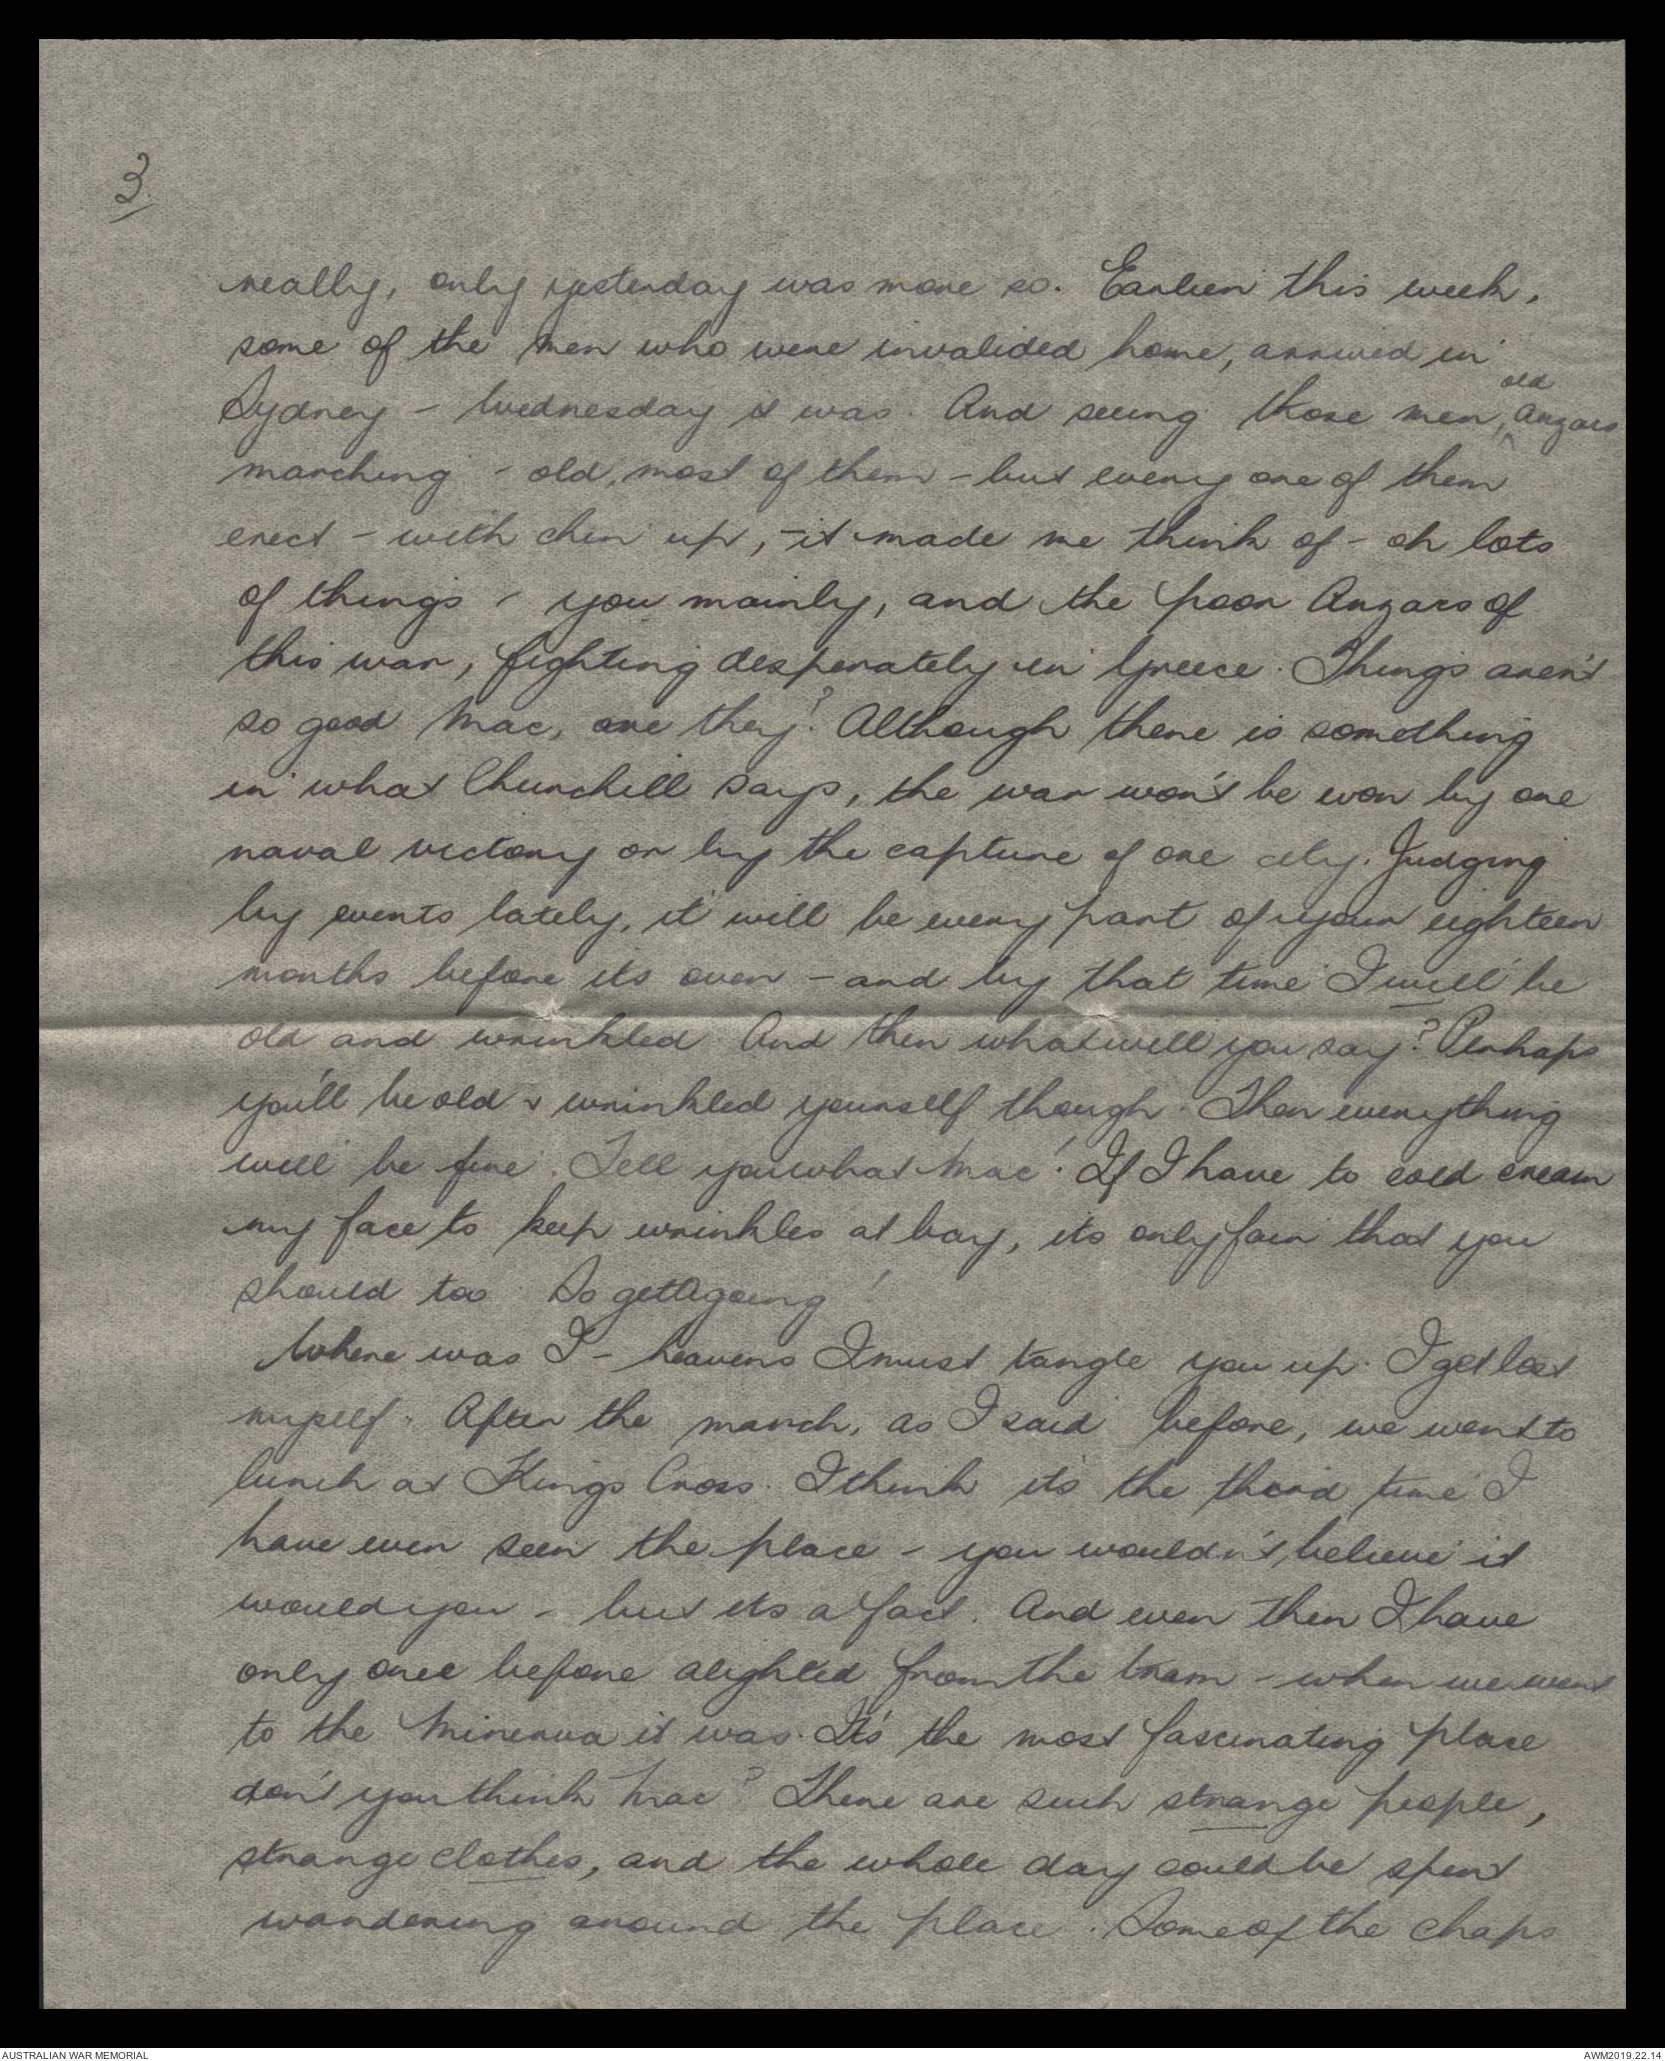 3
really, only yesterday was more so. Earlier this week,
some of the men who were invalided home, arrived in
Sydney - Wednesday it was. And seeing those men, old Anzacs
marching - old, most of them - but every one of them
erect - with chin up, - it made me think of - oh lots
of things - you mainly, and the poor Anzacs of
this war, fighting desperately in Greece. Things aren't
so good Mac, are they? Although there is something
in what Churchill says, the war won't be won by one
naval victory or by the capture of one city. Judging
by events lately, it will be every part of your eighteen
months before its over - and by that time I will be
old and wrinkled. And then what will you say? Perhaps
you'll be old & wrinkled yourself though. Then everything
will be fine. Tell you what Mac! If I have to cold cream
my face to keep wrinkles at bay, its only fair that you
should too. So get going!
Where was I - heavens I must tangle you up. I get lost
myself. After the march, as I said before, we went to
lunch at Kings Cross. I think its the third time I
have ever seen the place - you wouldn't believe it
would you - but its a fact. And even then I have
only once before alighted from the tram - when we went
to the Minerva it was. It's the most fascinating place
don't you think Mac? There are such strange people,
strange clothes, and the whole day could be spent
wandering around the place. Some of the chaps
AUSTRALIAN WAR MEMORIAL
AWM2019.22.14